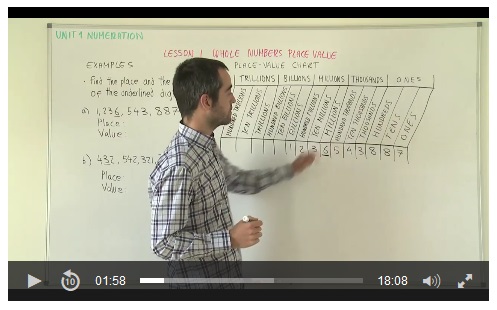 UNIT 1 NUMERATION
LESSON 1 WHOLE NUMBERS PLACE VALUE
EXAMPLES
PLACE-VALUE CHART
· Find the place and the
of the underlined
TRILLIONS BILLIONS MILLIONS THOUSANDS ONES
HUNDRED TRILLIONS
TEN TRILLIONS
TRILLIONS
HUNDRED BILLIONS
TEN BILLIONS
BILLIONS
HUNDRED MILLIONS
TEN MILLIONS
MILLIONS
HUNDRED THOUSANDS
TEN THOUSANDS
THOUSANDS
HUNDREDS
TENS
ONES
a) 1,236,543,887
1 2 3 6 5 4 3 8 8 7
Place:
Value:
b) 432,542,321
Place:
Value:
10
01:58
18:08